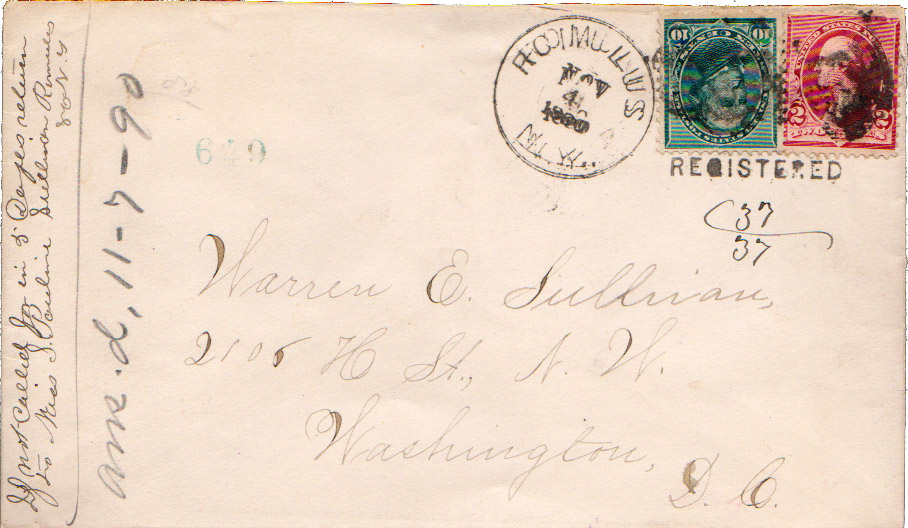 If not called for in 5 Days return
to Miss S. Pauline Sullivan Romulus
N. Y.
ans. d, 11-7-90
649
ROMULUS
NOV
4
N.Y.
10 10
UNITED STATES
2 2
REGISTERED
37
37
Warren E. Sullivan,
2106 H St., N. W.
Washington,
D. C.